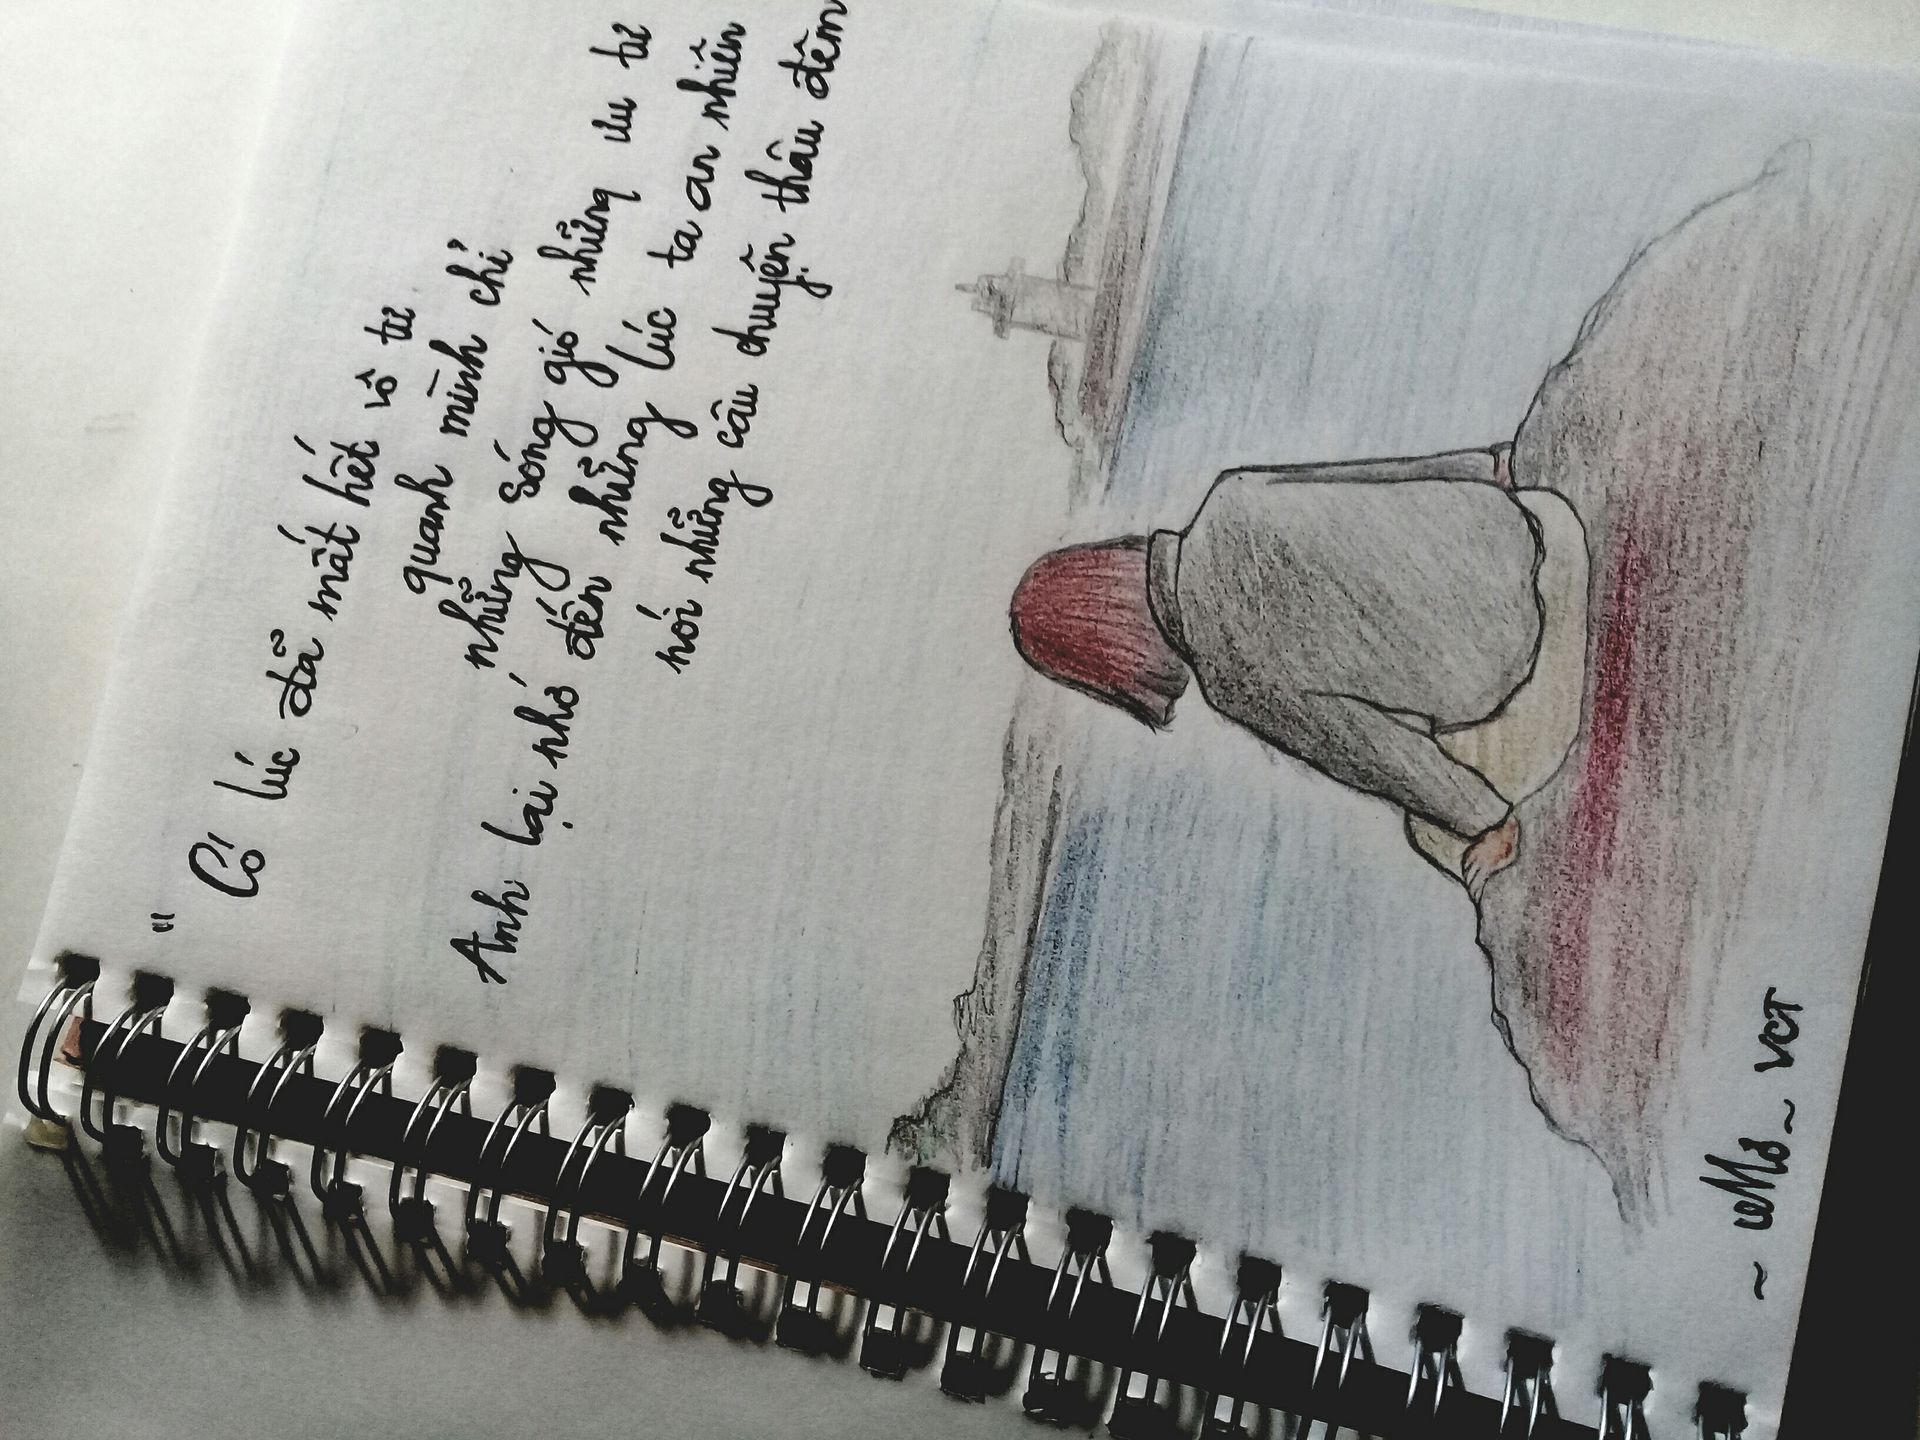 " Có lúc đã mất hết vô tư
quanh mình chỉ
những sóng gió những ưu tư
Anh lại nhớ đến những lúc ta an nhiên
nói những câu chuyện thâu đêm
~ Mơ ~ VCT